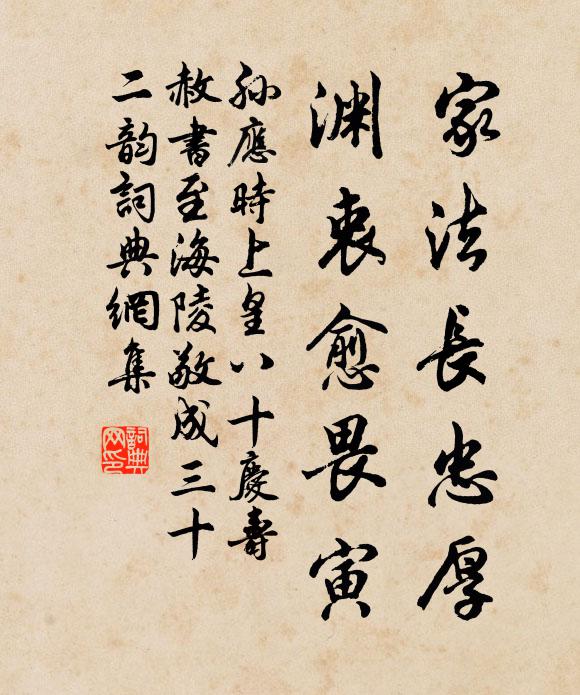 家法長忠厚
淵衷愈畏寅
孫應時上皇八十慶壽
赦書至海陵敬成三十
二韵詞典網集
詞典
网印